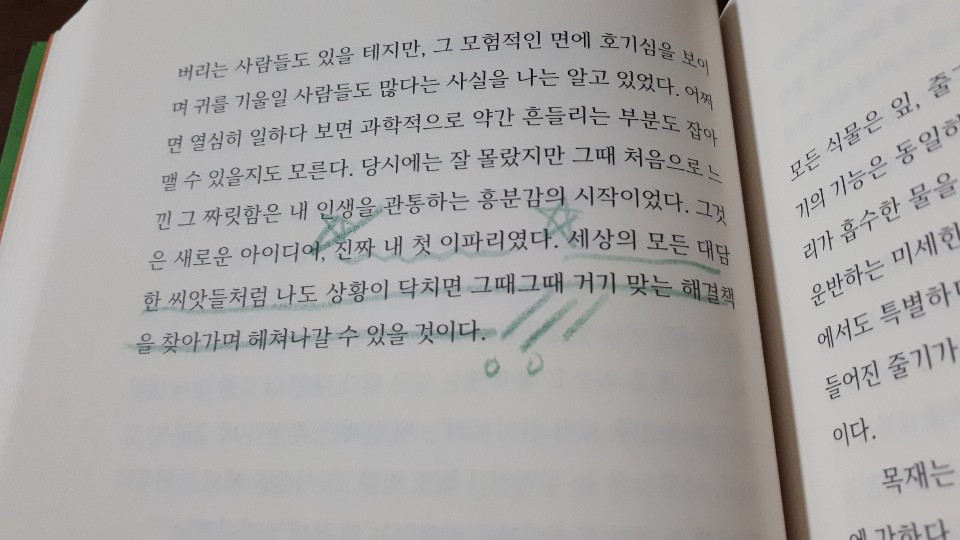 버리는 사람들도 있을 테지만, 그 모험적인 면에 호기심을 보이
며 귀를 기울일 사람들도 많다는 사실을 나는 알고 있었다. 어쩌
면 열심히 일하다 보면 과학적으로 약간 흔들리는 부분도 잡아
맬 수 있을지도 모른다. 당시에는 잘 몰랐지만 그때 처음으로 느
낀 그 짜릿함은 내 인생을 관통하는 흥분감의 시작이었다. 그것
은 새로운 아이디어, 진짜 내 첫 이파리였다. 세상의 모든 대담
한 씨앗들처럼 나도 상황이 닥치면 그때그때 거기 맞는 해결책
을 찾아가며 헤쳐나갈 수 있을 것이다.
모든 식물은 잎, 줄
기의 기능은 동일하
리가 흡수한 물을
운반하는 미세한
에서도 특별하
들어진 줄기가
이다.
목재는
에 강하다